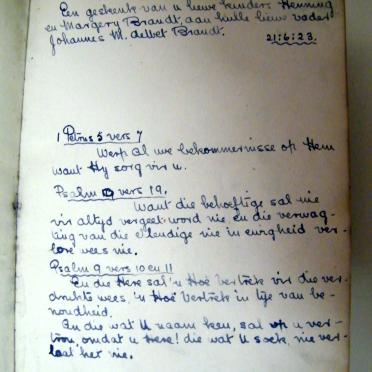 Een geskenk van u liewe kinders Henning
en Margery Brandt, aan hulle liewe vader
Johannes M. delbet Brandt.
21:6:23.
1 Petrus 5 vers 7
Werp al uwe bekommernisse op Hem
want Hy sorg vir u.
Psalm vers 19.
Want die behoeftige sal nie
vir altyd vergeet word nie en die verwag-
ting van die ellendige nie in ewigheid ver-
lore wees nie.
Psalm 9 vers 10 en 11
En die Here sal 'n Hoë Vertrek vir die ver-
drukte wees, 'n Hoë Vertrek in tye van be-
noudheid.
En die wat U naam ken, sal op u ver-
trou, omdat u Here! die wat U soek, nie ver-
laat het nie.